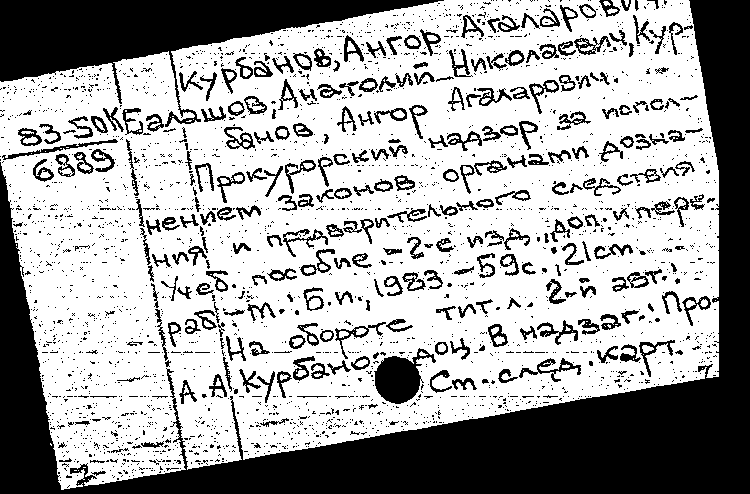 Курбанов, Ангор Агаларович.
83-50К Балашов, Анатолий Николаевич, Кур-
6889 банов, Ангор Агаларович.
Прокурорский надзор за испол-
нением законов органами дозна-
ния и предварительного следствия:
Учеб. пособие. - 2-е изд., доп. и пере-
раб. - М.: Б.и., 1983. - 59с.; 21см.
На обороте тит. л. 2-й авт.:
А.А. Курбано доц. В надзаг.: Про-
Ст. след. карт.